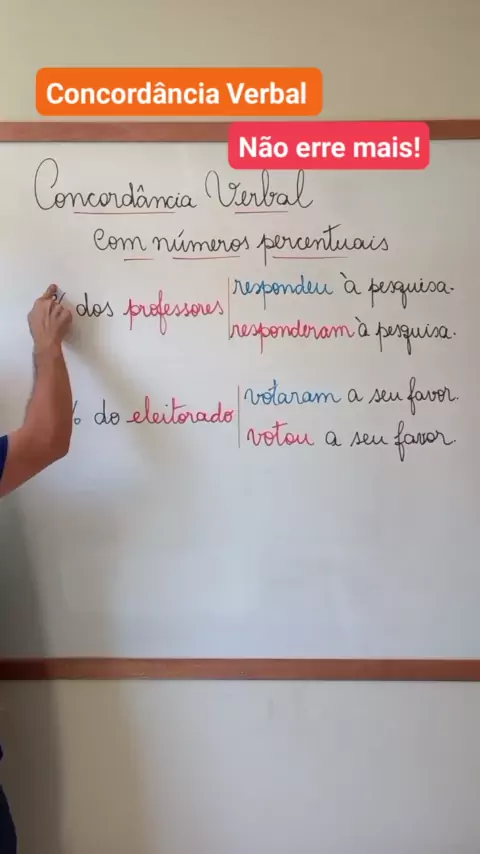 Concordância Verbal
Não erre mais!
Concordância Verbal
Com números percentuais
% dos professores
respondeu à pesquisa.
responderam à pesquisa.
% do eleitorado
votaram a seu favor.
votou a seu favor.